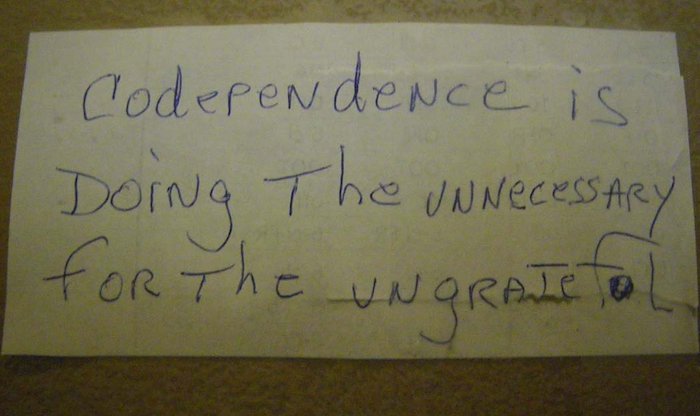 Codependence is
Doing The unnecessary
for The ungrateful